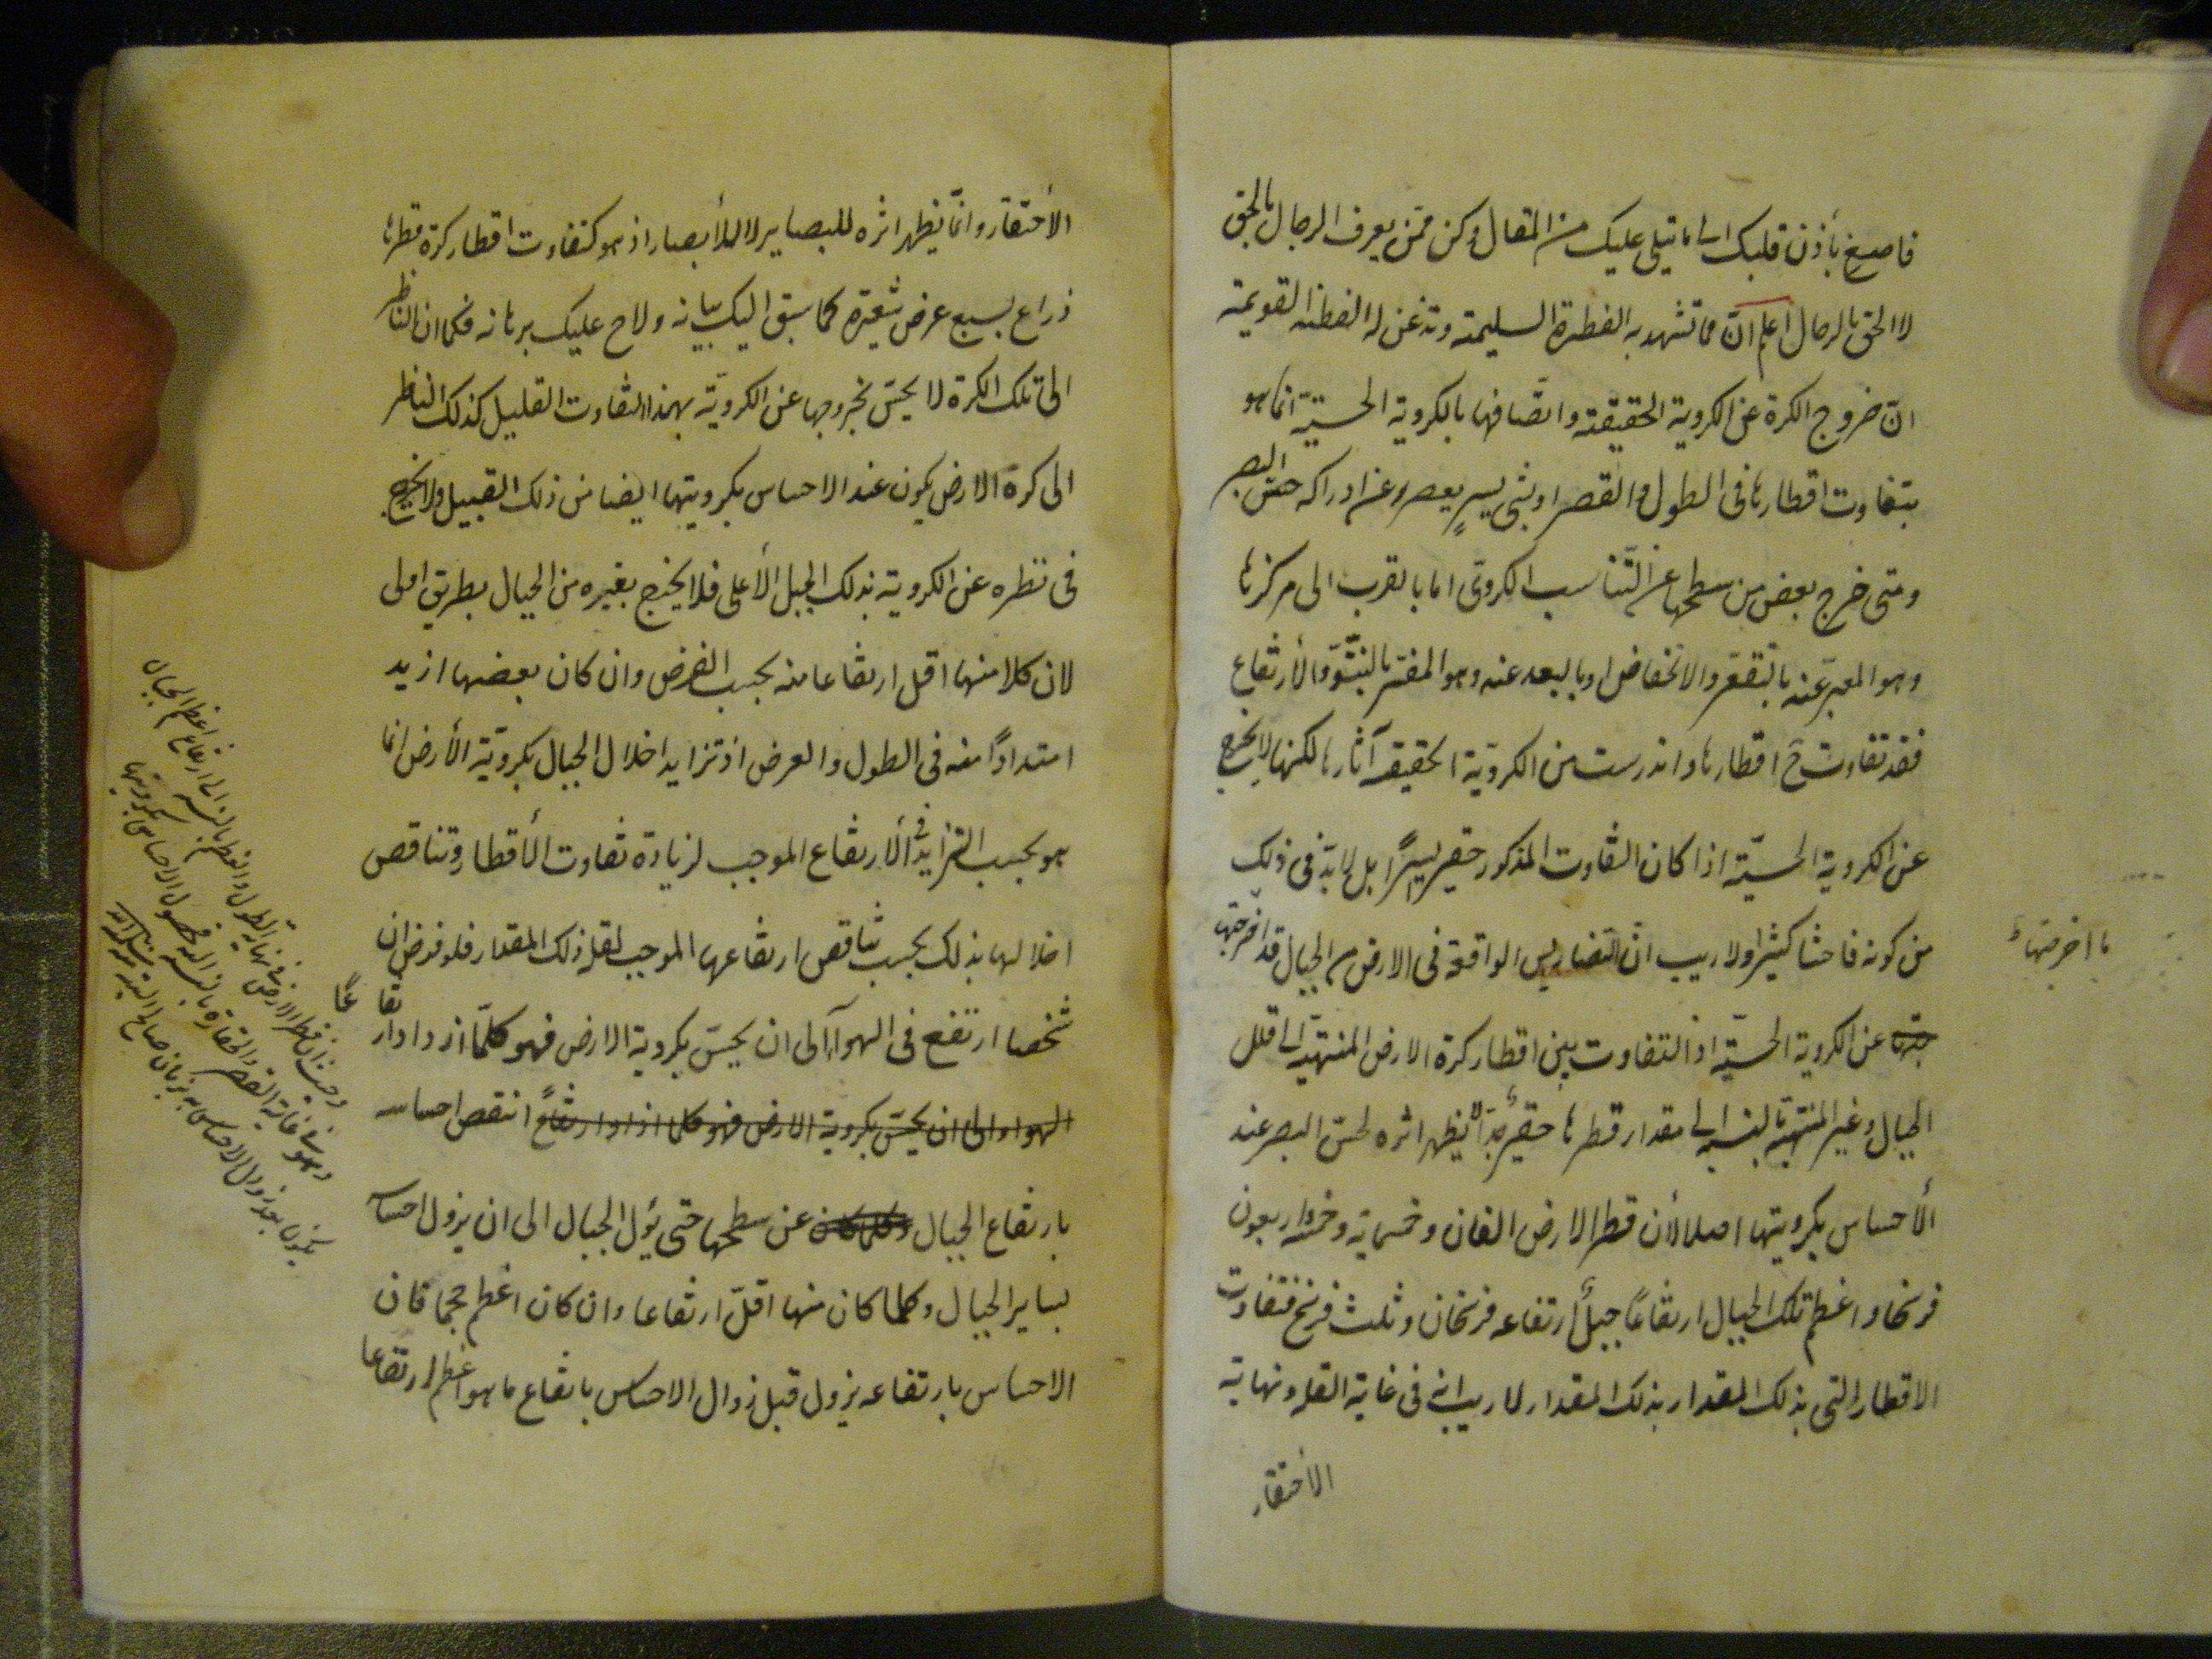 فاصغ بأذن قلبك الى ما يتلى عليك من المقال وكن ممّن يعرف الرجال بالحق
لا الحق بالرجال اعلم انّ مما تشهد به الفطرة السليمة وتذعن له الفطنة القويمة
انّ خروج الكرة عن الكروية الحقيقية واتّصافها بالكروية الحسيّة انّما هو
بتفاوت اقطارها فى الطول والقصر او بشئ يسيرٍ يعصر عن ادراكه حسّ البصر
ومتى خرج بعض من سطحها عن التّناسب الكروى اما بالقرب الى مركزها
وهو المعبّر عنه بالتقعّر والانخفاض او بالبعد عنه وهو المفسّر بالنتّوّ والأرتفاع
فقد تفاوتت ح اقطارها واندرست من الكرويّة الحقيقة آثارها لكنها لا يخرج
عن الكروية الحسيّة اذا كان التفاوت المذكور حقيرًا يسيرًا بل لا بدّ فى ذلك
من كونه فاحشا كثيرا ولا ريب انّ التضاريس الواقعة فى الارض من الجبال قد اخرجتها
عن الكروية الحسيّة اذ التفاوت بين اقطار كرة الارض المنتهية الى قلل
الجبال وغير المنتهية بالنسبة الى مقدار قطرها حقيرٌ جدّا لا يظهر اثره لحسّ البصر عند
الأحساس بكرويتها اصلا لأن قطر الارض الفان وخمسمایة وخمسة واربعون
فرسخا واعظم تلك الجبال ارتفاعًا جبلٌ ارتفاعه فرسخان وثلث فرسخ فتفاوت
الاقطار التى بذلك المقدار بذلك المقدار لا ريب انه فى غاية القلة ونهاية
الاحتقار
ما اخرجتها
الأحتقار وانّما يظهر اثره للبصاير لا للأبصار اذ هو كتفاوت اقطار كرة قطرها
ذراع بسبع عرض شعيرة كما سبق اليك بيانه ولاح عليك برهانه فكما ان الناظر
الى تلك الكرة لا يحسّ بخروجها عن الكرويّة بهذا التفاوت القليل كذلك الناظر
الى كرة الارض يكون عند الاحساس بكرويتها ايضا من ذلك القبيل ولا يخرج
فى نظره عن الكروية بذلك الجبل الأعلى فلا يخرج بغيره من الجبال بطريق اولى
لان كلا منها اقل ارتفاعا منه بحسب الفرض وان كان بعضها ازيد
امتدادًا منه فى الطول والعرض اذ تزايد اخلال الجبال بكرويّة الأرض انما
هو بحسب التزايد فى الأرتفاع الموجب لزيادة تفاوت الأقطار وتناقص
اخلالها بذلك بحسب تناقص ارتفاعها الموجب لقلة ذلك المقدار فلو فرض ان
شخصا ارتفع فى الهوآء الى ان يحسّ بكروية الارض فهو كلّما ازداد ارتفاعًا
الهواء الى ان يحسّ بكروية الارض فهو كلما ازداد ارتفاعً انتقص احساسه
بارتفاع الجبال عن سطحها حتى يؤل الجبال الى ان يزول احساسه
بساير الجبال وكلما كان منها اقلّ ارتفاعا وان كان اعظم حجما فان
الاحساس بارتفاعه يزول قبل زوال الاحساس بارتفاع ما هو اعظم ارتفاعا
وحيث ان قطر الارض فى نهاية الطول والعظم بالنسبة الى ارتفاع اعظم الجبال
وهو فى غاية القصر والحقارة بالنسبة اليه الاحساس بكرويتها
يكون بعد زوال الاحساس به بزمان صالح